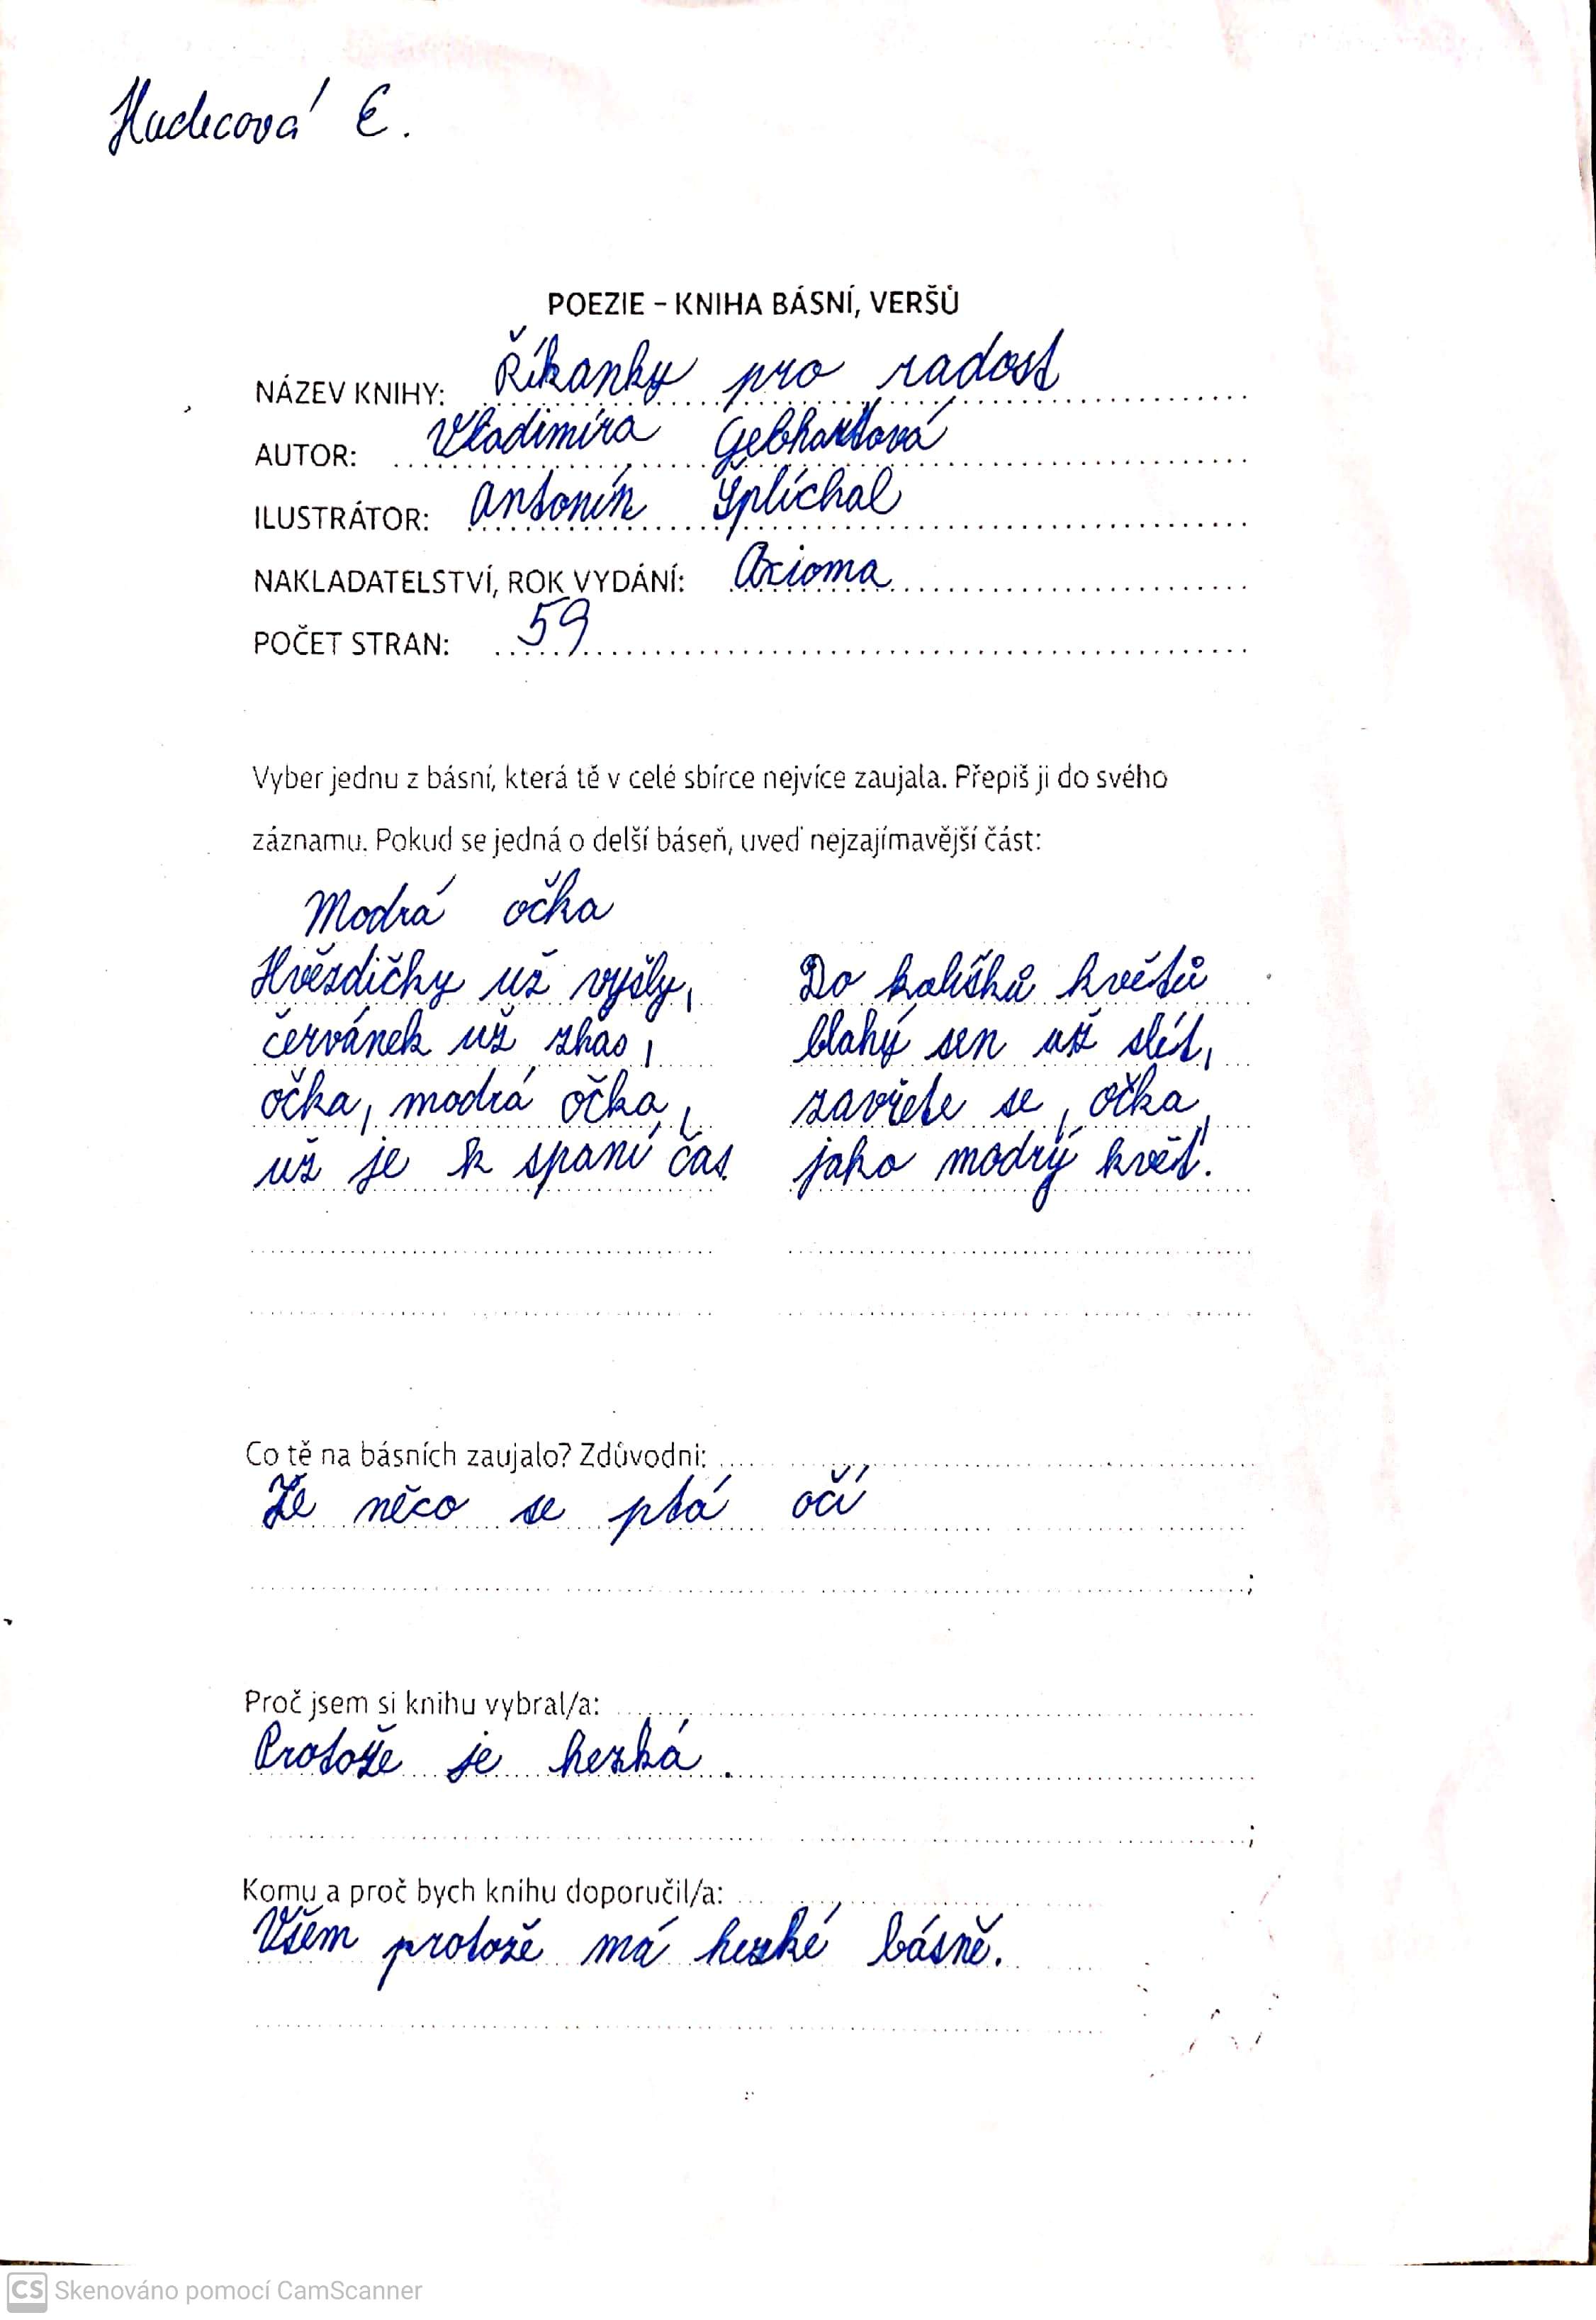 Hudecová E.
POEZIE – KNIHA BÁSNÍ, VERŠŮ
NÁZEV KNIHY: Říkanky pro radost
AUTOR: Vladimíra Gebhartová
ILUSTRÁTOR: Antonín Šplíchal
NAKLADATELSTVÍ, ROK VYDÁNÍ: Axioma
POČET STRAN: 59
Vyber jednu z básní, která tě v celé sbírce nejvíce zaujala. Přepiš ji do svého
záznamu. Pokud se jedná o delší báseň, uveď nejzajímavější část:
Modrá očka
Hvězdičky už vyšly,
červánek už zhas,
očka, modrá očka,
už je k spaní čas.
Do kalíšků květů
blahý sen už slét,
zavřete se, očka,
jako modrý květ.
Co tě na básních zaujalo? Zdůvodni:
Že něco se ptá očí
Proč jsem si knihu vybral/a:
Protože je hezká.
Komu a proč bych knihu doporučil/a:
Všem protože má hezké básně.
CS Skenováno pomocí CamScanner